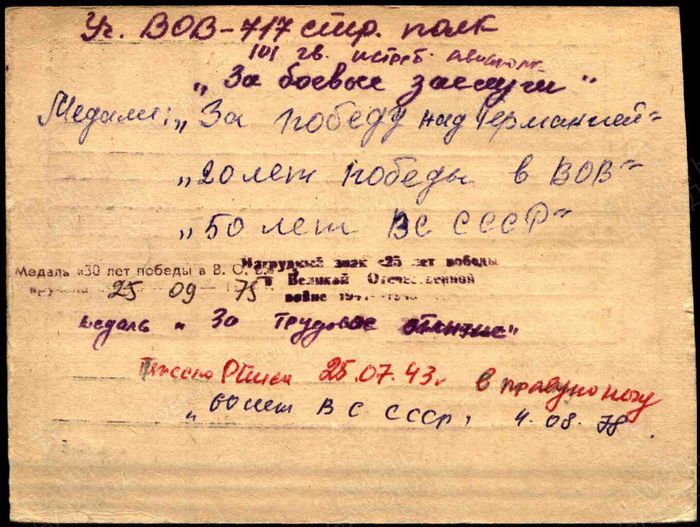 Уч. ВОВ-717 стр. полк
101 гв. истреб. авиаполк
„За боевые заслуги"
Медали: „За победу над Германией"
„20 лет победы в ВОВ"
„50 лет ВС СССР"
Медаль «30 лет победы в В. О.
Нагрудный знак «25 лет победы
в Великой Отечественной
войне 1941-1945
вручена 25 09 - 75
медаль „За трудовое отличие"
Тяжело Ранен 25.07.43. в правую ногу
„60 лет ВС СССР, 4.08.78.